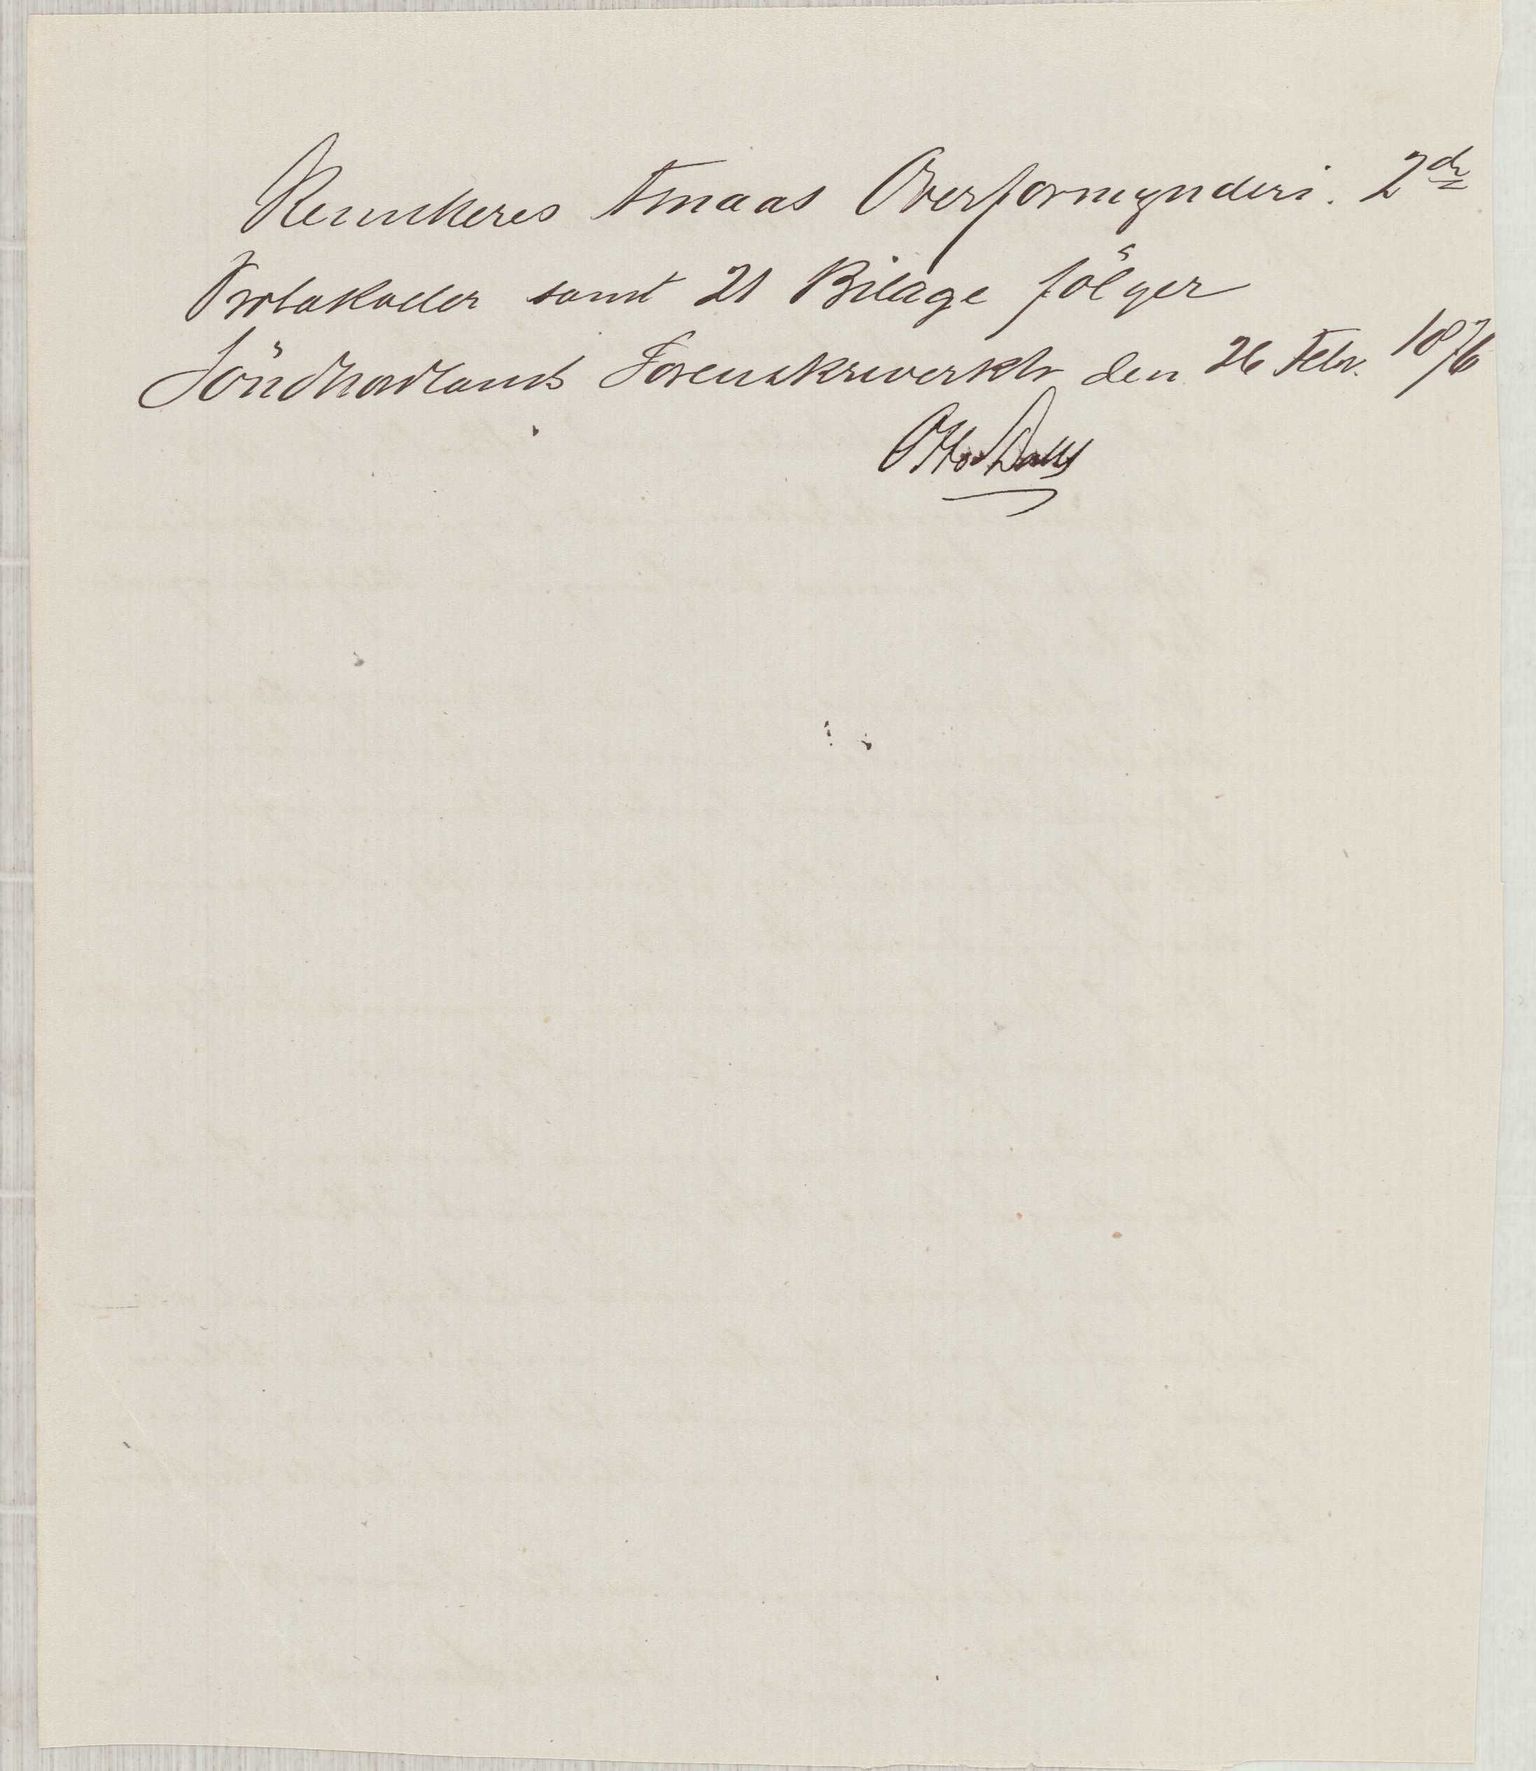 Remitteres Tmaas Overformynderi. 2de
Protokoller samt 21 Bilage fölger
Söndhordlands Sorenskriverktr den 26 Febr. 1876
Otto